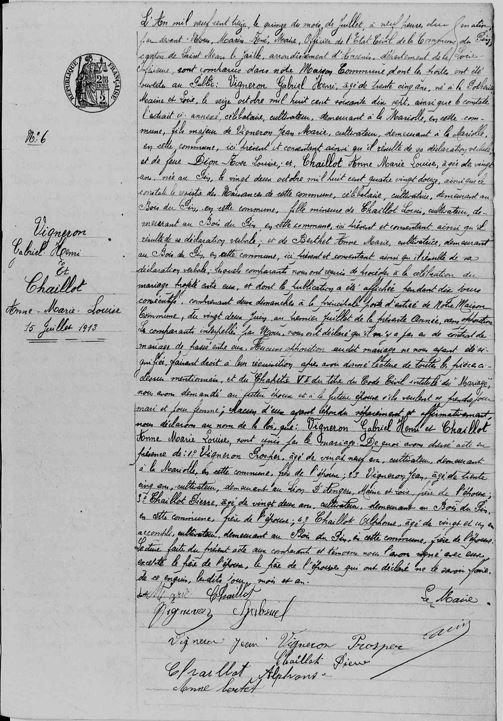 RÉPUBLIQUE FRANÇAISE
N° 6
Vigneron
Gabriel Henri
Et
Chaillot
Anne-Marie-Louise
15 Juillet 1913
L'An mil neuf cent treize, le quinze du mois de Juillet, à neuf heures du matin
par devant Nous, Marin René, Marie, Officier de l'Etat Civil de la Commune du Pin,
canton de Saint Mars la Jaille, arrondissement d'Ancenis, département de la Loire
Inférieure, sont comparus dans notre Maison Commune dont les portes ont été
ouvertes au Public: Vigneron Gabriel Henri, âgé de trente cinq ans, né à la
Maine et Loire, le seize octobre mil huit cent soixante dix sept, ainsi que le constate
l'extrait ci annexé, célibataire, cultivateur, demeurant à la Mariolle, en cette com-
mune, fils majeur de Vigneron Jean Marie, cultivateur, demeurant à la Mariolle,
en cette commune, ici présent et consentant ainsi qu'il résulte de sa déclaration verbale,
et de feue Dion Rose Louise; et, Chaillot Anne Marie Louise, âgée de vingt
ans, née au Pin, le vingt deux octobre mil huit cent quatre vingt douze, ainsi que le
constate le registre des Naissances de cette commune, célibataire, cultivatrice, demeurant au
Bois du Pin, en cette commune, fille mineure de Chaillot Louis, cultivateur, de-
meurant au Bois du Pin, en cette commune, ici présent et consentant ainsi qu'il
résulte de sa déclaration verbale; et de Berthet Anne Marie, cultivatrice, demeurant
au Bois du Pin, en cette commune, ici présente et consentant ainsi qu'il résulte de sa
déclaration verbale; lesquels comparants nous ont requis de procéder à la célébration du
mariage projeté entre eux, et dont la publication a été affichée pendant dix jours
consécutifs, comprenant deux dimanches à la principale porte d'entrée de Notre Maison
Commune, du vingt deux Juin, au premier Juillet de la présente Année, sans opposition.
Les comparants interpellés par Nous, nous ont déclaré qu'il n'y a pas eu de contrat de
mariage de passé entre eux. Aucune opposition audit mariage ne nous ayant été si-
gnifiée, faisant droit à leur réquisition, après avoir donné lecture de toutes les pièces ci
dessus mentionnées, et du Chapitre VI du titre du Code Civil intitulé du Mariage,
nous avons demandé au futur époux et à la future épouse s'ils veulent se prendre pour
mari et pour femme; chacun d'eux ayant répondu séparément et affirmativement,
nous déclarons au nom de la loi, que: Vigneron Gabriel Henri et Chaillot
Anne Marie Louise, sont unis par le mariage. De quoi avons dressé acte en
présence de: 1° Vigneron Prosper, âgé de vingt neuf ans, cultivateur, demeurant
à la Mariolle, en cette commune, frère de l'époux; 2° Vigneron Jean, âgé de trente
cinq ans, cultivateur, demeurant au Lion d'Angers, Maine et Loire, frère de l'époux;
3° Chaillot Pierre, âgé de vingt deux ans, cultivateur, demeurant au Bois du Pin
en cette commune, frère de l'épouse; 4° Chaillot Alphonse, âgé de vingt et un ans
accomplis, cultivateur, demeurant au Bois du Pin, en cette commune, frère de l'épouse.
Lecture faite du présent acte aux comparants et témoins nous l'avons signé avec eux,
excepté le père de l'époux, le père de l'épouse qui ont déclaré ne le savoir faire,
de ce enquis, lesdits jour, mois et an.
Chaillot
Le Maire
Vigneron Gabriel
Marin
Vigneron Jean Vigneron Prosper
Chaillot Pierre
Chaillot Alphonse
Anne Bertet